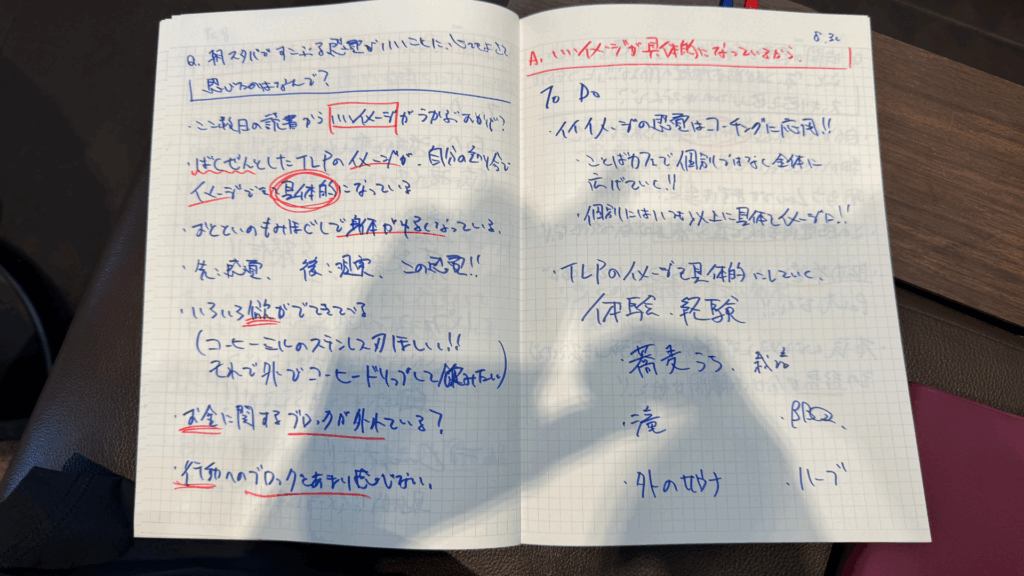 Q. 朝スタバですこぶる感度がいいことに、
感じるのはなんで?
・ここ数日の読書から いいイメージがうかぶおかげ?
・ばくぜんとしたTLPのイメージが、自分の中で
イメージできて具体的になっている
・おとといのもみほぐしで身体がゆるくなっている。
・先:応電、 後:現実、 この感電!!
・いろいろ欲がでてきている
(コーヒーミルのステンレス刃ほしい!!
それで外でコーヒードリップして飲みたい)
・お金に関するブロックが外れている?
・行動へのブロックをあまり感じない。
8.30
A. いいイメージが具体的になっているから。
To Do
・イイイメージの感電はコーチングに応用!!
・ことばカフェで個別ではなく全体に
広げていく!!
・個別にはいつも以上に具体でイメージに!!
・TLPのイメージを具体的にしていく
体験・経験
・蕎麦うち、栽培
・滝 ・BBQ、
・外の ・ハーブ